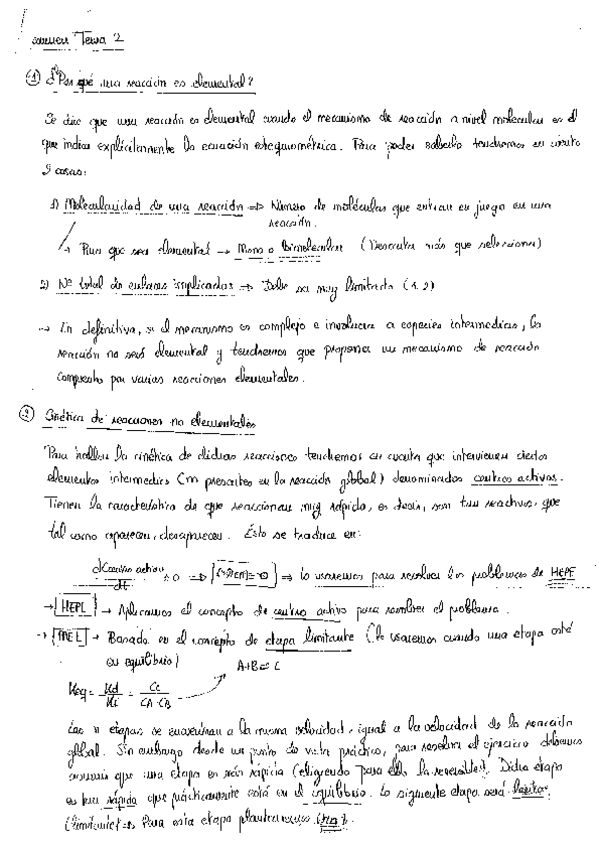 Resumen Tema 2
① ¿Por qué una reacción es elemental?
Se dice que una reacción es elemental cuando el mecanismo de reacción a nivel molecular es el
que indica explícitamente la ecuación estequiométrica. Para poder saberlo tendremos en cuenta
2 cosas:
1) Molecularidad de una reacción => Número de moléculas que entran en juego en una
reacción.
→ Para que sea elemental → Mono o Bimolecular (Descartar más que seleccionar)
2) Nº total de enlaces implicados => Debe ser muy limitado (1, 2)
→ En definitiva, si el mecanismo es complejo e involucra a especies intermedias, la
reacción no será elemental y tendremos que proponer un mecanismo de reacción
compuesto por varias reacciones elementales.
② Cinética de reacciones no elementales
Para hallar la cinética de dichas reacciones tendremos en cuenta que intervienen ciertos
elementos intermedios (no presentes en la reacción global) denominados centros activos.
Tienen la característica de que reaccionan muy rápido, es decir, son tan reactivos, que
tal como aparecen, desaparecen. Esto se traduce en:
dCcentro activo / dt ≈ 0 => => lo usaremos para resolver los problemas de HEPE
→ HEPE → Aplicamos el concepto de centro activo para resolver el problema.
→ → Basado en el concepto de etapa limitante (lo usaremos cuando una etapa esté
en equilibrio)
A+B ⇌ C
Keq = Kd/Ki = Cc/CA·CB
Las n etapas se encuentran a la misma velocidad, igual a la velocidad de la reacción
global. Sin embargo desde un punto de vista práctico, para resolver el ejercicio debemos
asumir que una etapa es más rápida (eligiendo para ello la reversible). Dicha etapa
es tan rápida que prácticamente está en el equilibrio. La siguiente etapa será lenta
(limitante) => Para esta etapa plantearemos